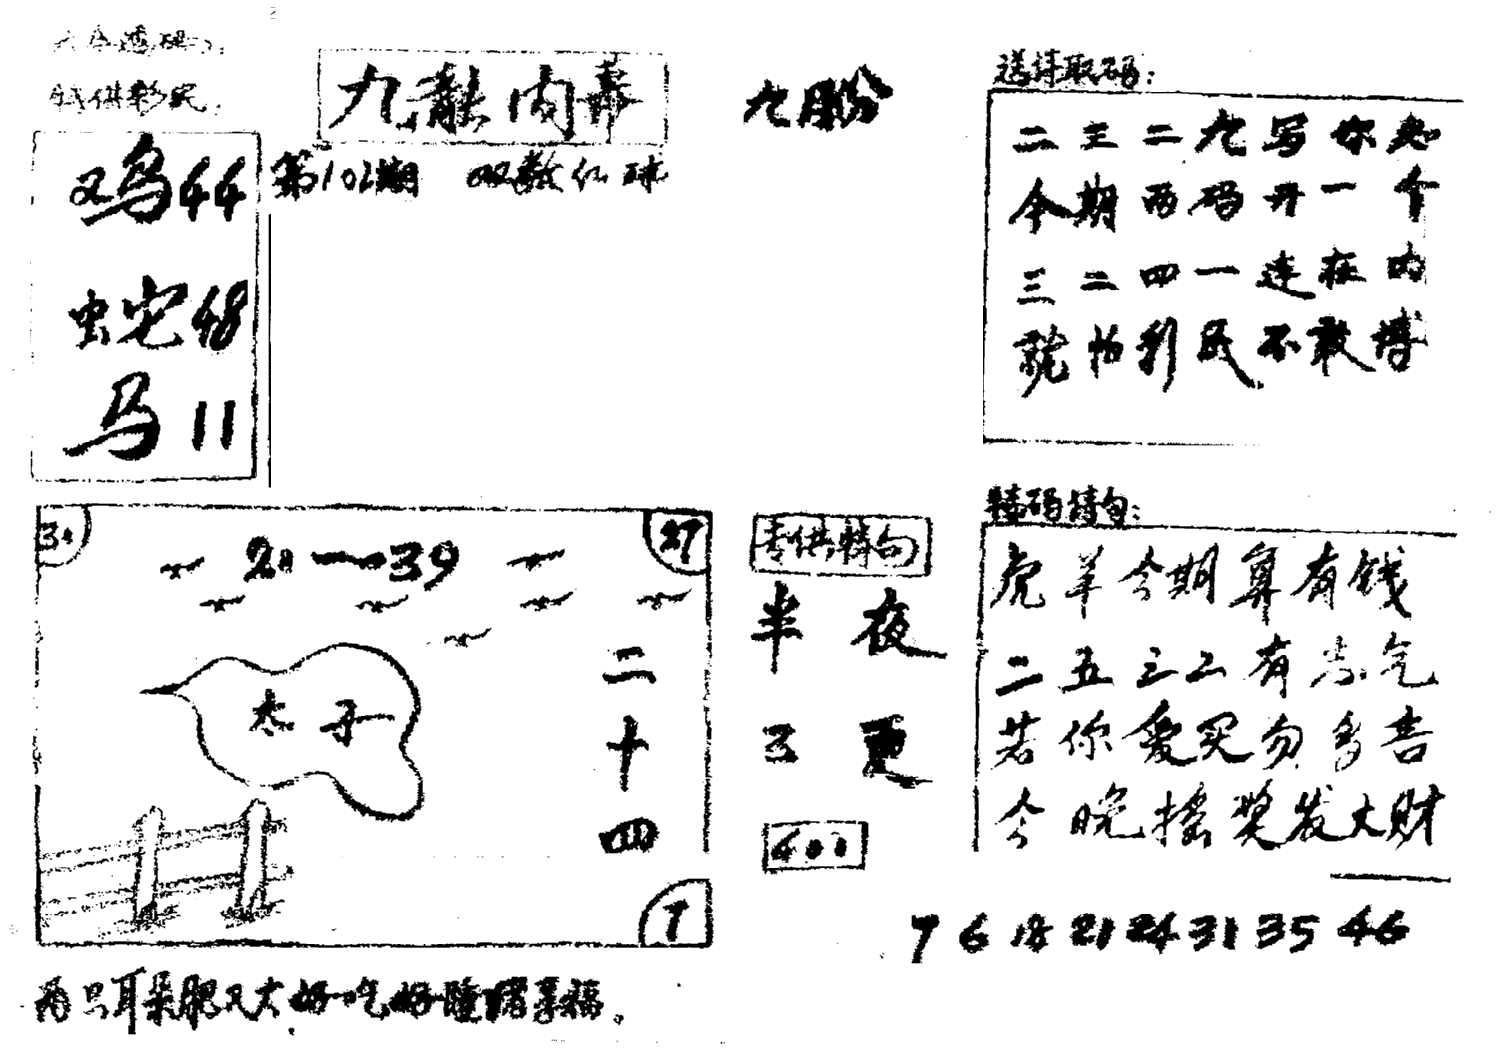 九龍内幕
九月份
第102期 双数红球
鸡44
蛇48
马11
送诗取码：
二三二九写你知
今期两码开一个
三二四一连在内
就怕彩民不敢博
特码诗句：
虎羊今期算有钱
二五三二有 气
若你爱买勿多告
今晚摇奖发大财
7 6 18 21 24 31 35 46
专供特句
半夜
三更
400
27
20一39
太子
二十四
7
两只耳朵肥又大好吃好睡 享福。